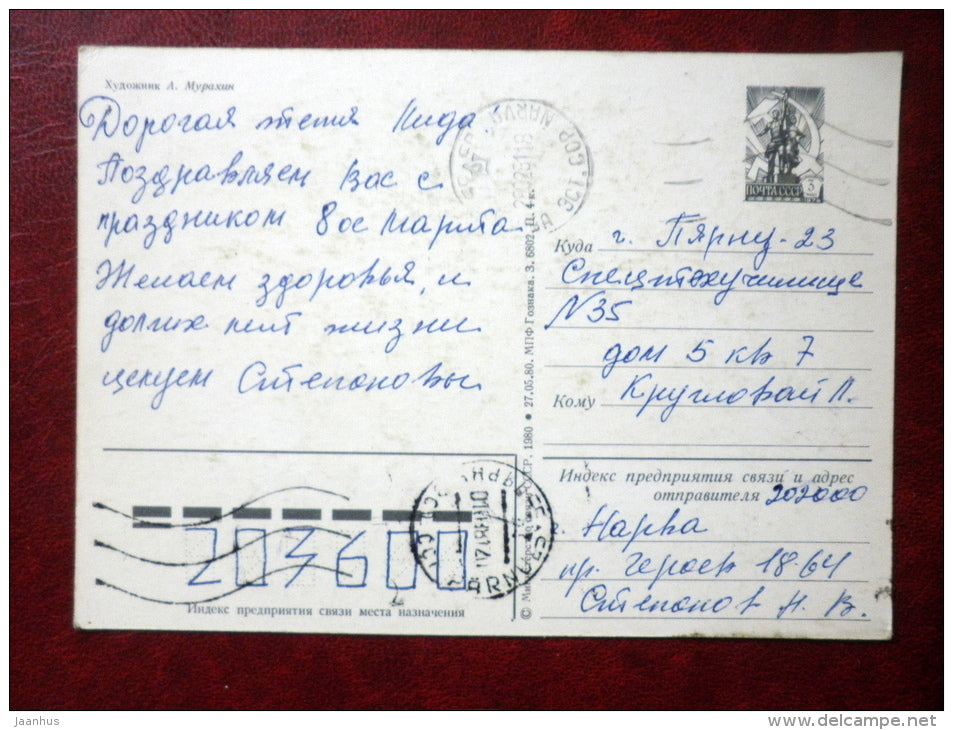 Художник А. Мурахин
Дорогая тётя Лида!
Поздравляем Вас с
праздником 8ое Марта.
Желаем здоровья, и
долгих лет жизни
целуем Степановы
ПОЧТА СССР
3
Куда г. Пярну-23
Спецптехучилище
N35
дом 5 кв 7
Кому Кругловой Л.
Индекс предприятия связи и адрес
отправителя 202000
г. Нарва
пр. Героев 18-64
Степанов Н. В.
203600
Индекс предприятия связи места назначения
27.05.80. МПФ Гознака. З. 6802. Ц. 4 к.
NARVA
PÄRNU
jaanhus
www.delcampe.net